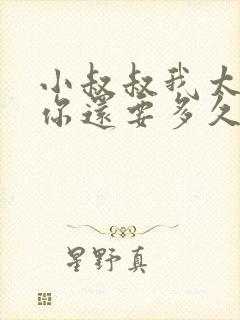 小叔叔我太
你還要多久
星野真